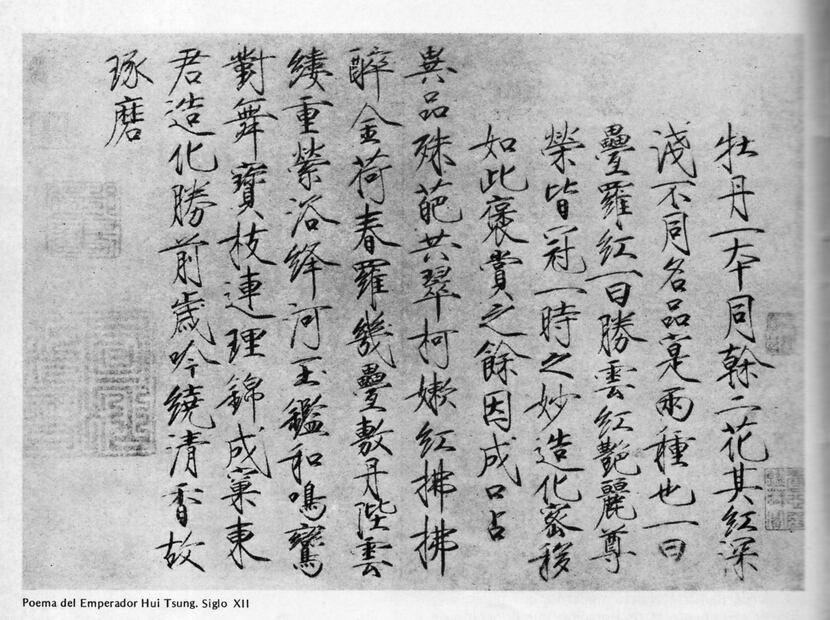 牡丹一本同幹二花其紅深
淺不同名品寔兩種也一曰
疊羅紅一曰勝雲紅艷麗尊
榮皆冠一時之妙造化密移
如此褒賞之餘因成口占
異品殊葩共翠柯嫩紅拂拂
醉金荷春羅幾疊敷丹陛雲
縷重縈浴絳河玉鑑和鳴鸞
對舞寶枝連理錦成窠東
君造化勝前歲吟繞清香故
琢磨
Poema del Emperador Hui Tsung. Siglo XII